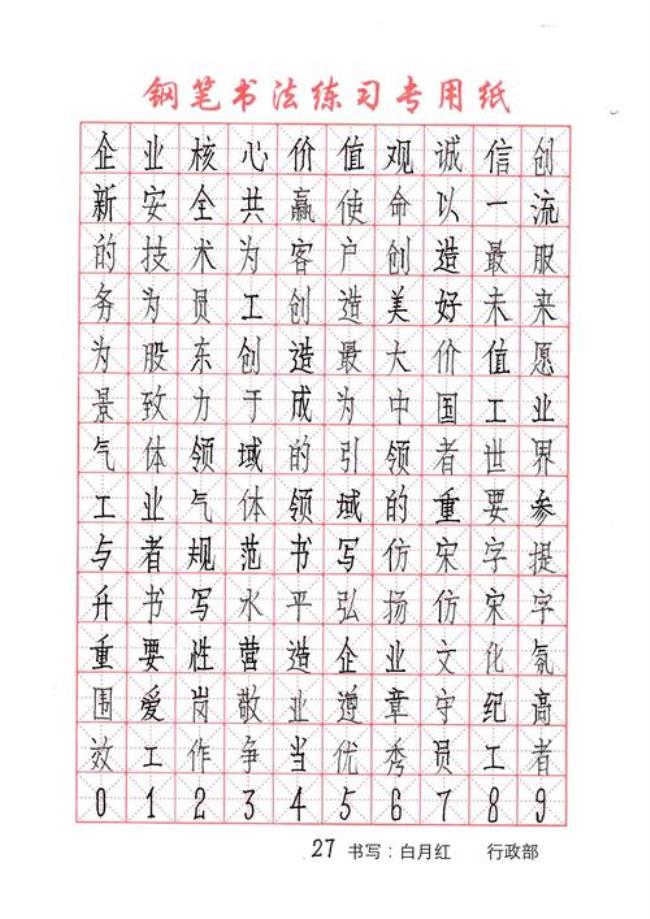 钢笔书法练习专用纸
企业核心价值观诚信创
新安全共赢使命以一流
的技术为客户创造最服
务为员工创造美好未来
为股东创造最大价值愿
景致力于成为中国工业
气体领域的引领者世界
工业气体领域的重要参
与者规范书写仿宋字提
升书写水平弘扬仿宋字
重要性营造企业文化氛
围爱岗敬业遵章守纪高
效工作争当优秀员工者
0123456789
27 书写：白月红 行政部